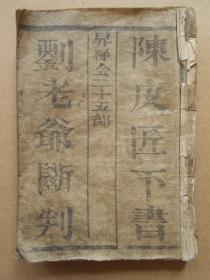 陳皮匠下書
昇種会二十五部
劉老爺斷判